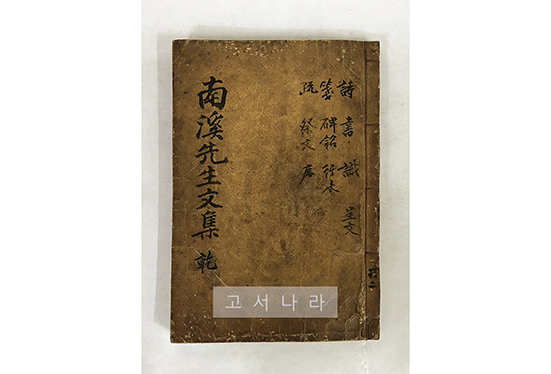 南溪先生文集 乾
詩 書 識 呈文
碑銘 行状
疏 祭文 序
共二
고서나라